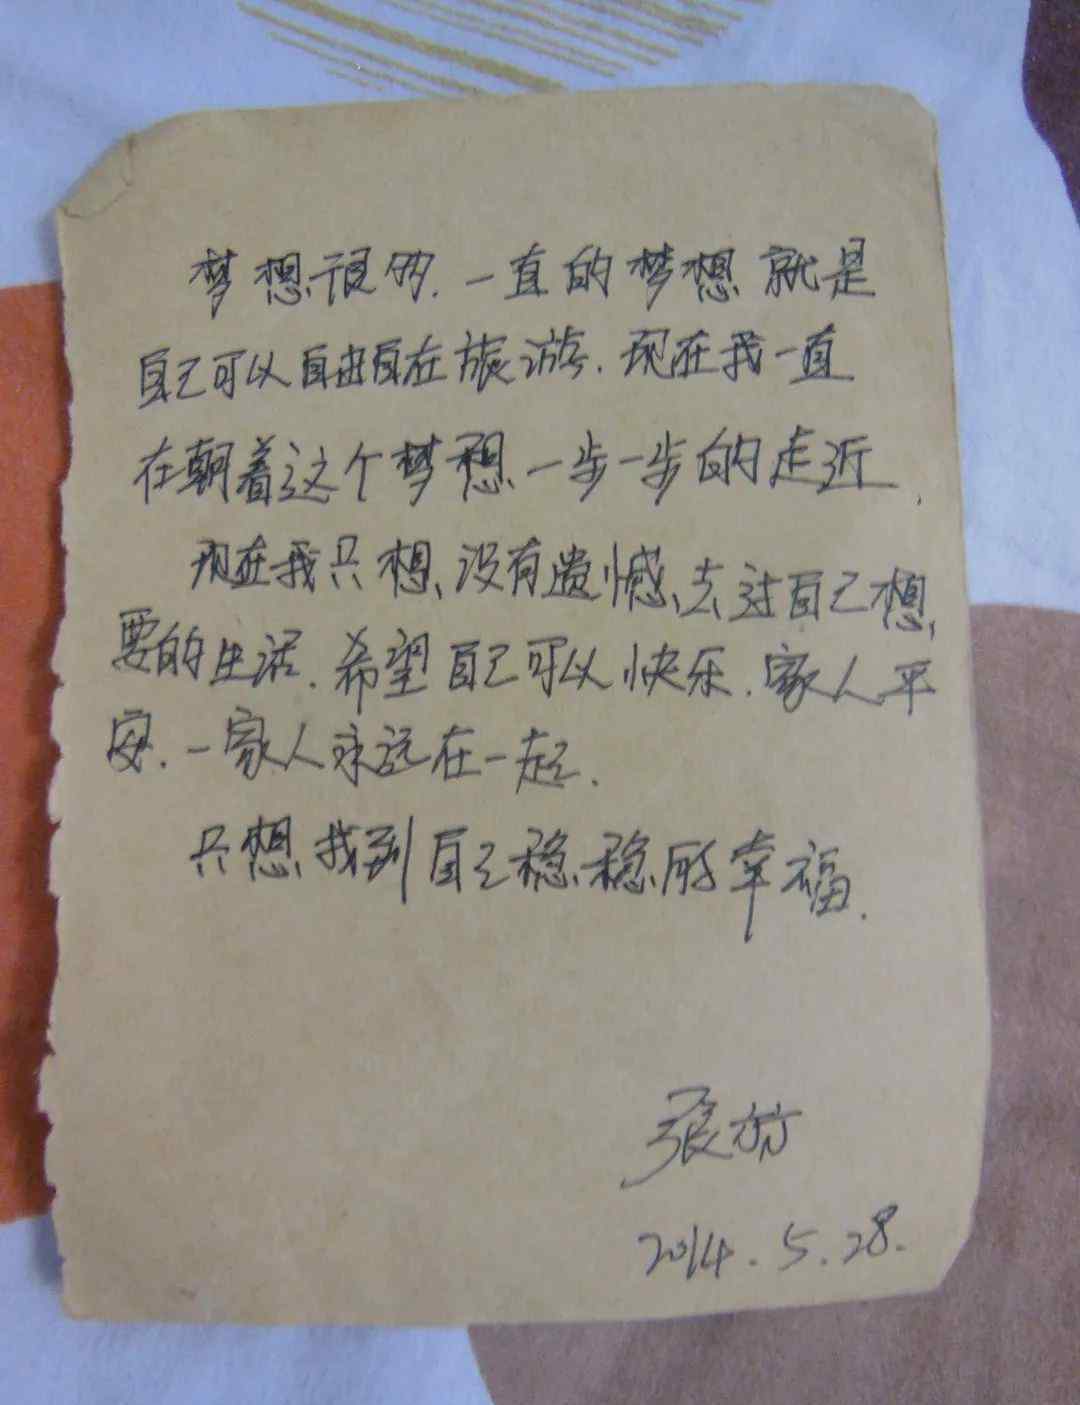 梦想很多.一直的梦想就是
自己可以自由自在旅游.现在我一直
在朝着这个梦想一步一步的走近.
现在我只想、没有遗憾、去过自己想
要的生活.希望自己可以快乐.家人平
安.一家人永远在一起.
只想找到自己稳稳的幸福.
张
2014.5.28.